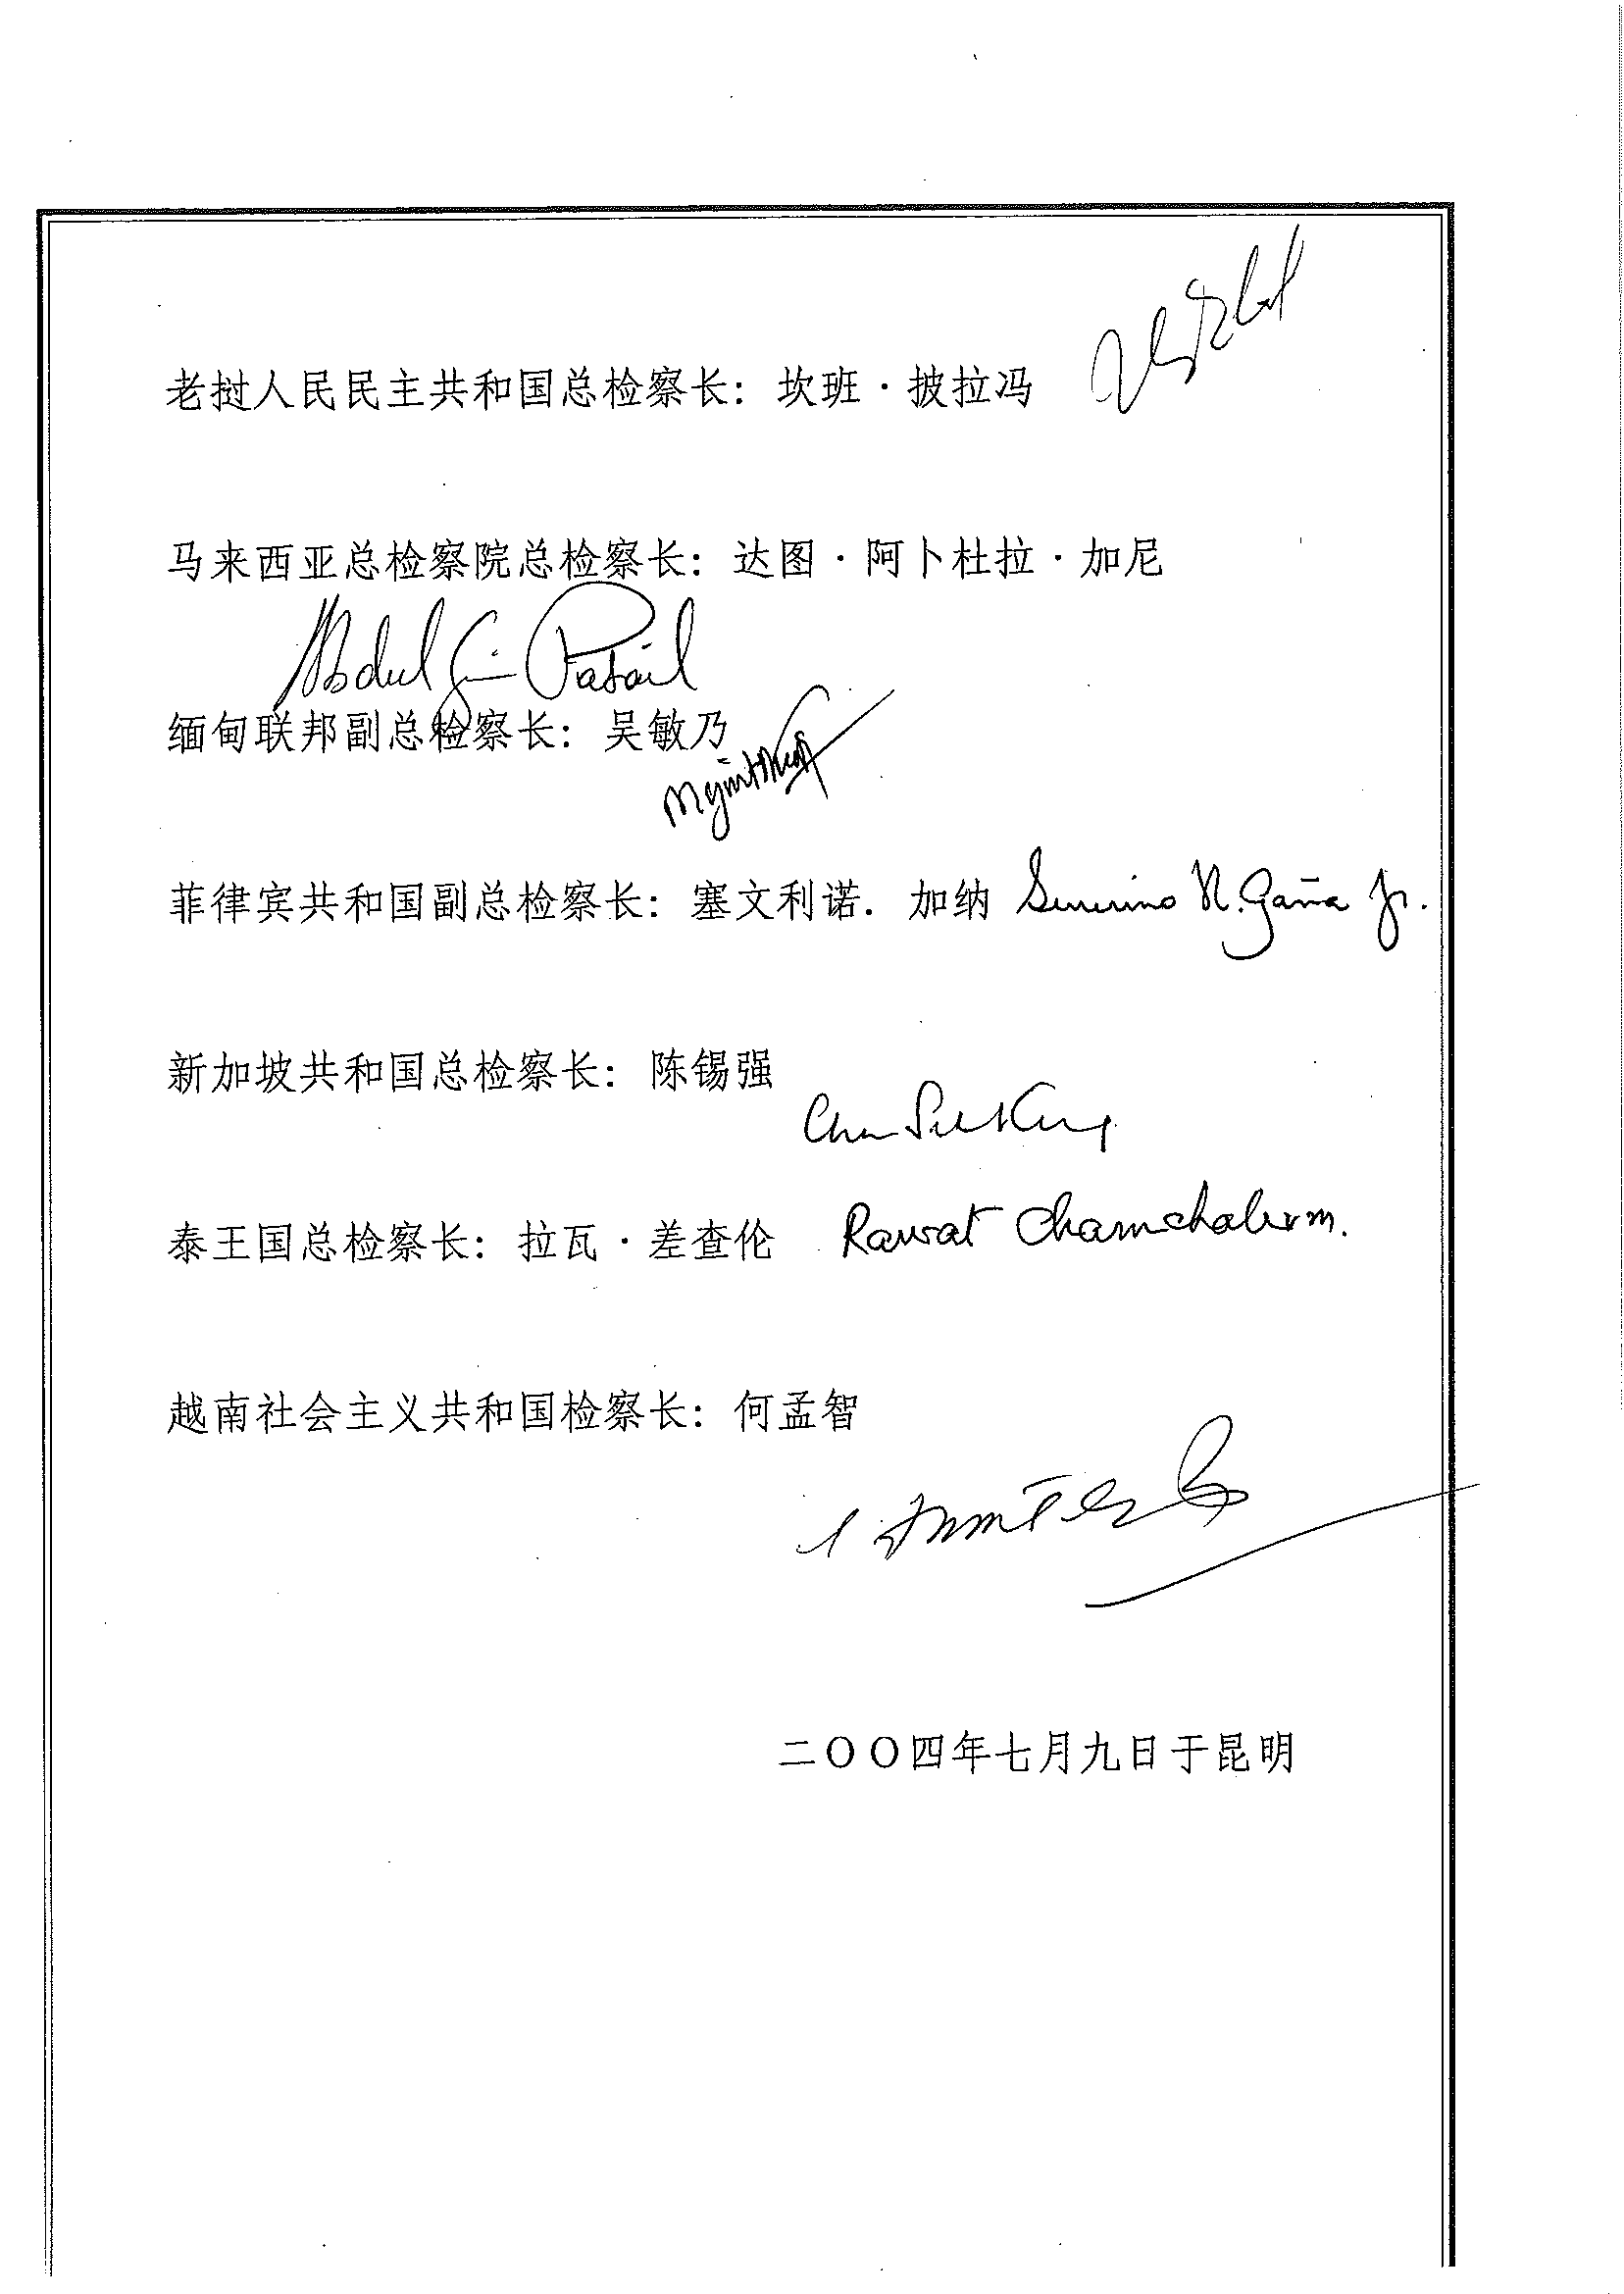 老挝人民民主共和国总检察长：坎班·披拉冯
马来西亚总检察院总检察长：达图·阿卜杜拉·加尼
Abdul Gani Patail
缅甸联邦副总检察长：吴敏乃
菲律宾共和国副总检察长：塞文利诺．加纳 Severino N. Gaña Jr.
新加坡共和国总检察长：陈锡强
Chan Sek Keong
泰王国总检察长：拉瓦·差查伦 Rawat Chamchalerm.
越南社会主义共和国检察长：何孟智
二〇〇四年七月九日于昆明